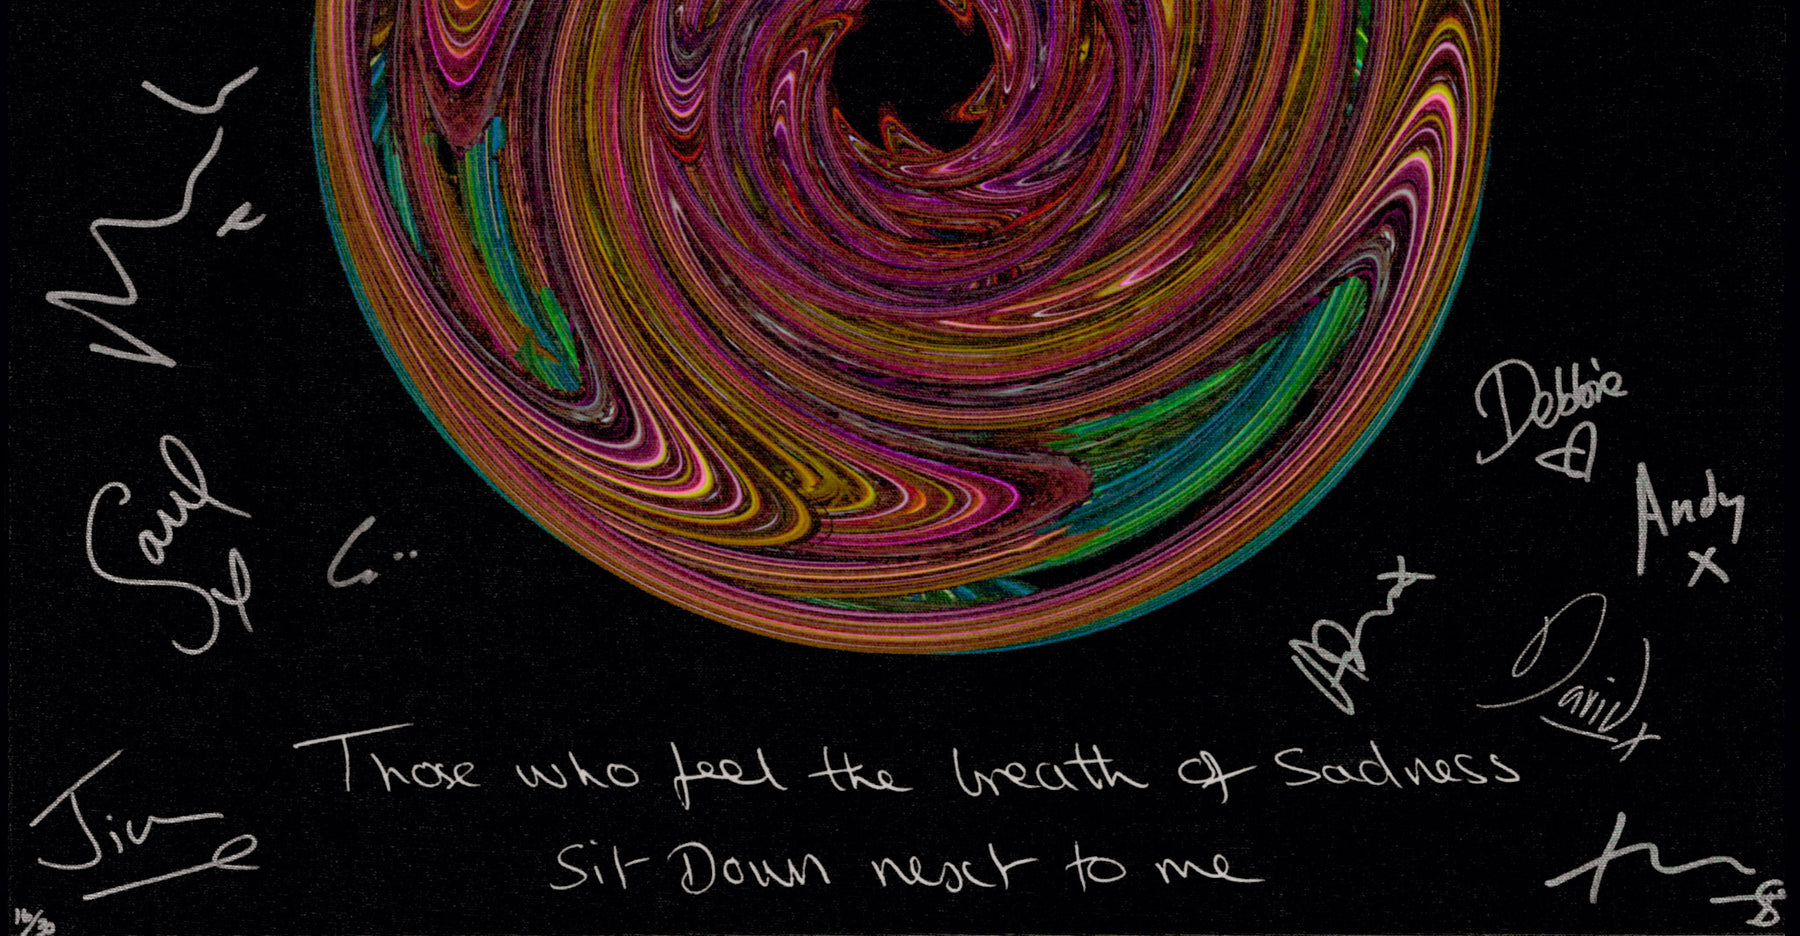 Saul
Debbie
Andy
x
David x
Those who feel the breath of sadness
Jim
Sit Down next to me
16/30